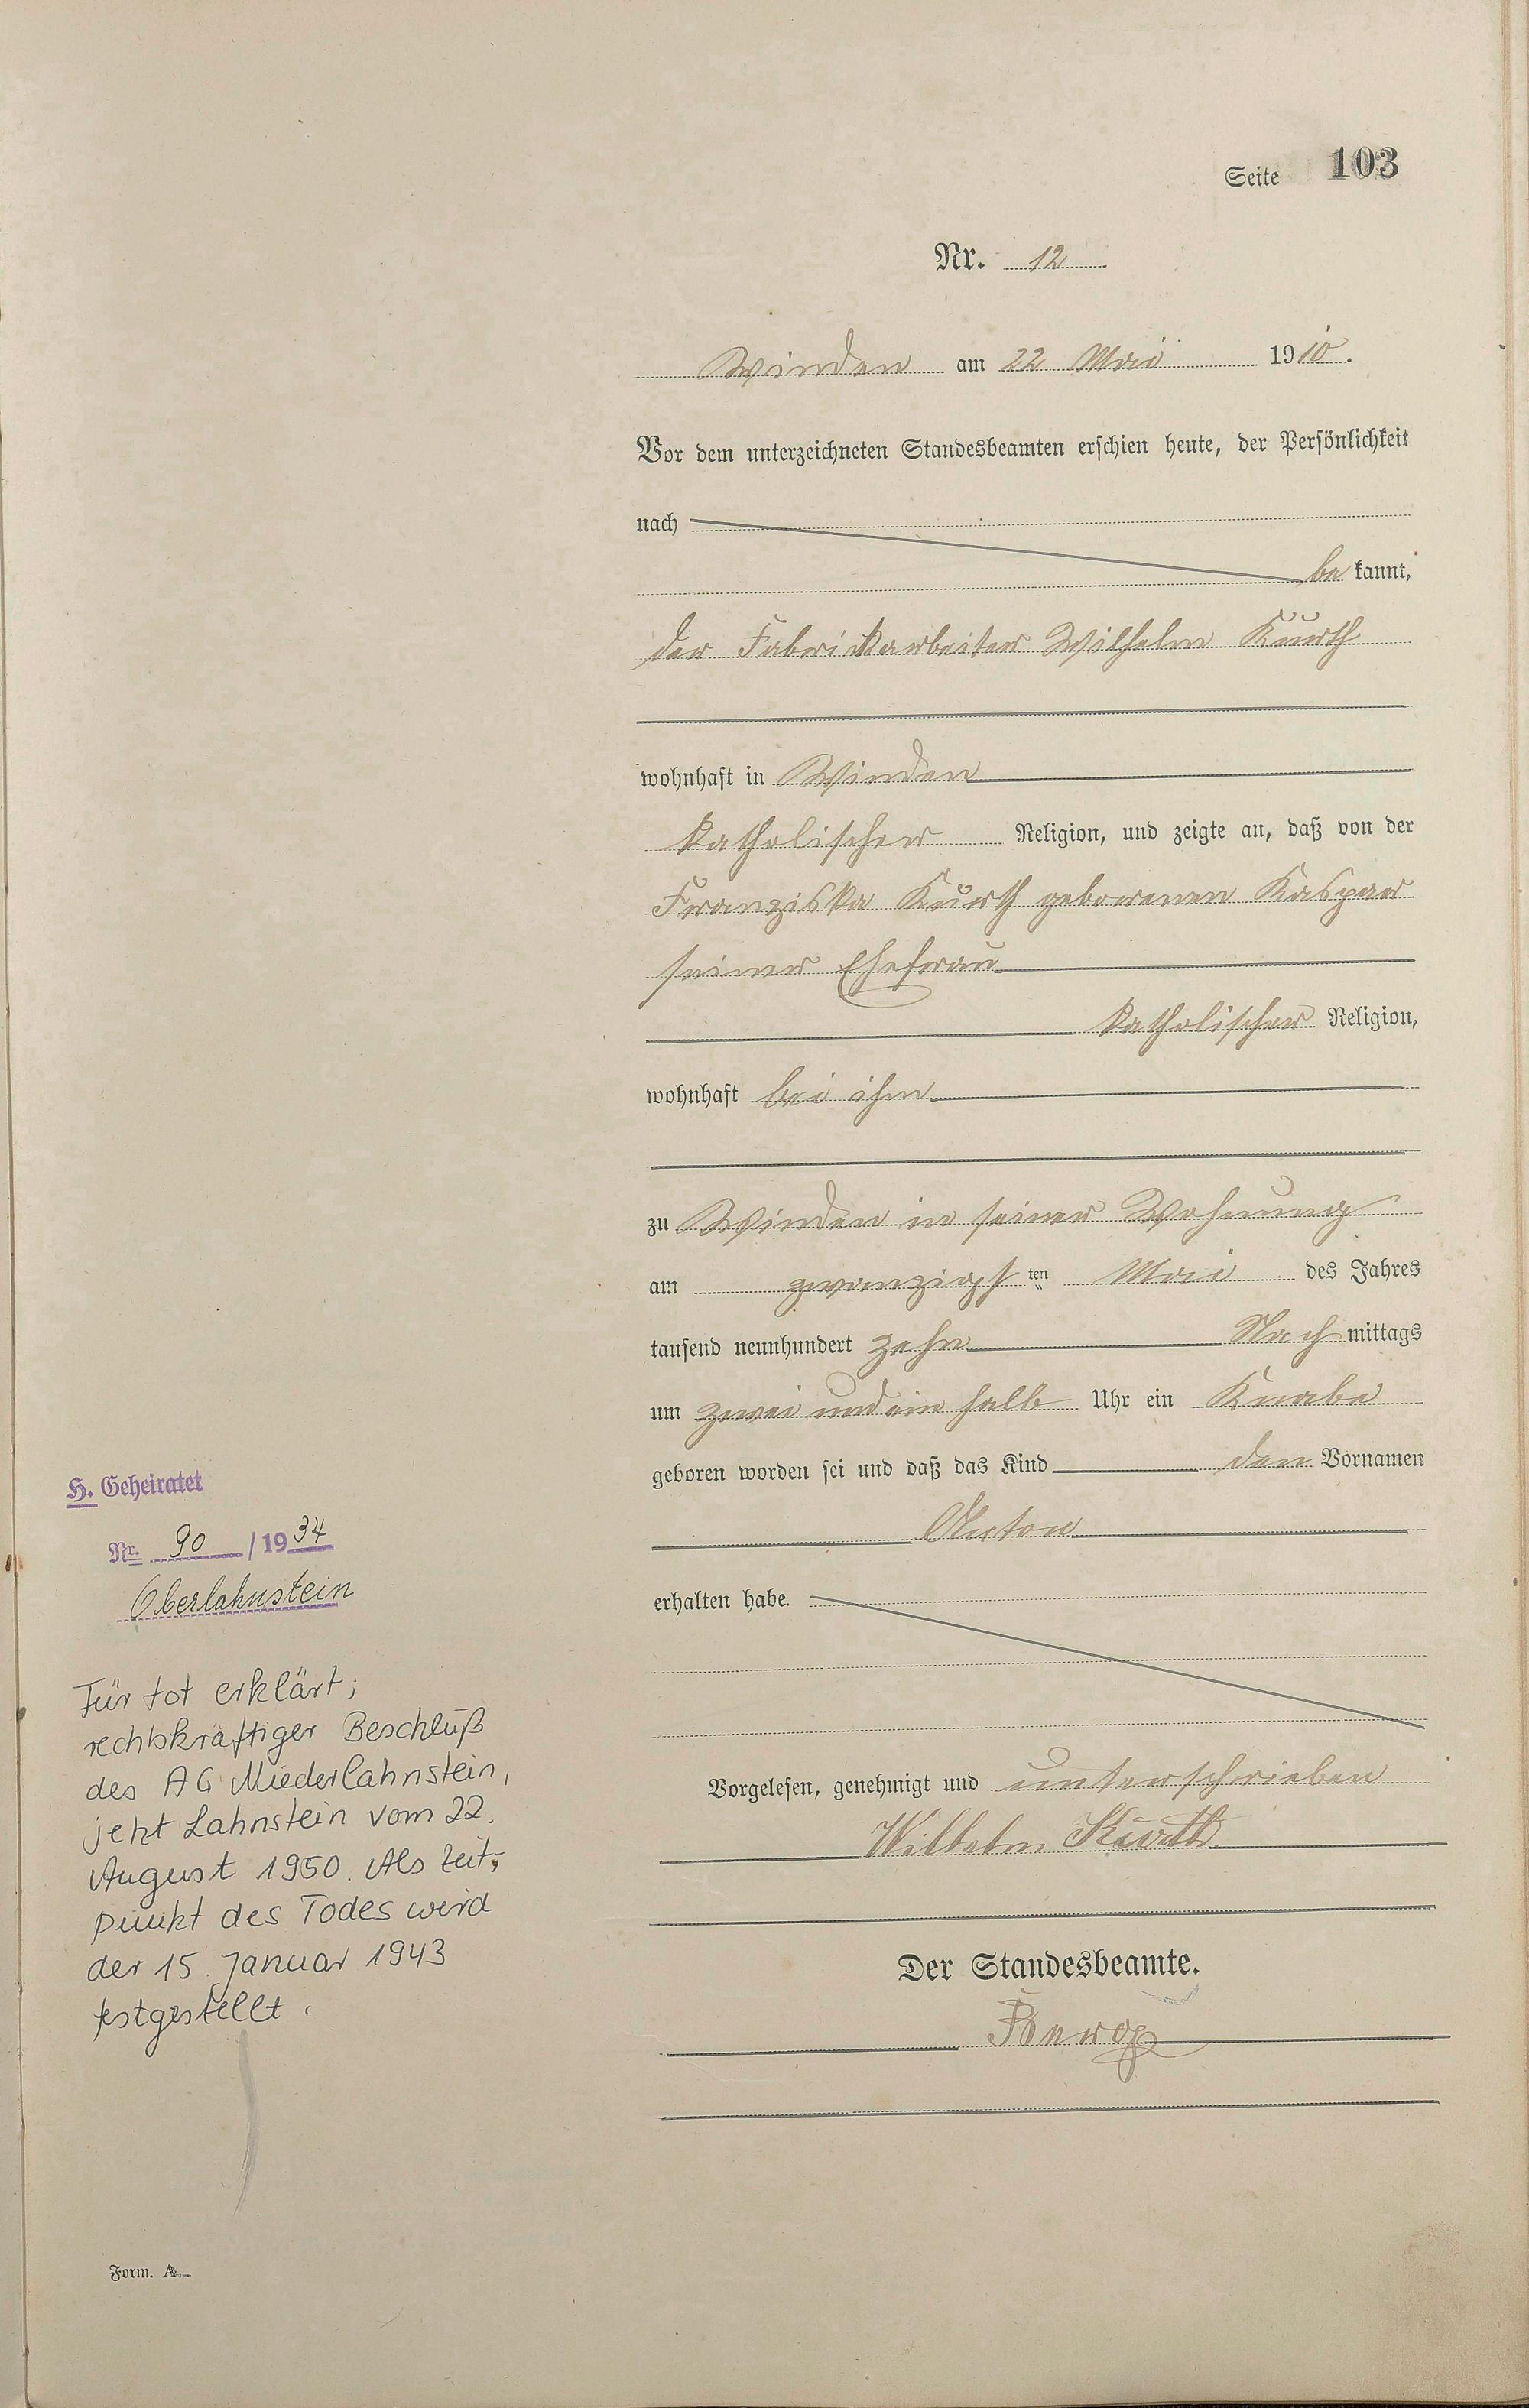 Seite 103
Nr. 12
Winden am 22 Mai 1910.
Vor dem unterzeichneten Standesbeamten erschien heute, der Persönlichkeit
nach
be kannt,
der Fabrikarbeiter Wilhelm Kurth
wohnhaft in Winden
katholischer Religion, und zeigte an, daß von der
Franziska Kurth geborenen Kaspar
seiner Ehefrau
katholischer Religion,
wohnhaft bei ihm
zu Winden in seiner Wohnung
am zwanzigsten Mai des Jahres
tausend neunhundert zehn Nachmittags
um zwei und ein halb Uhr ein Knabe
geboren worden sei und daß das Kind den Vornamen
Anton
erhalten habe.
Vorgelesen, genehmigt und unterschrieben
Wilhelm Kurth
Der Standesbeamte.
H. Geheiratet
Nr. 90 / 1934
Oberlahnstein
Für tot erklärt;
rechtskräftiger Beschluß
des AG Niederlahnstein,
jetzt Lahnstein vom 22.
August 1950. Als Zeit-
punkt des Todes wird
der 15. Januar 1943
festgestellt.
Form. A.